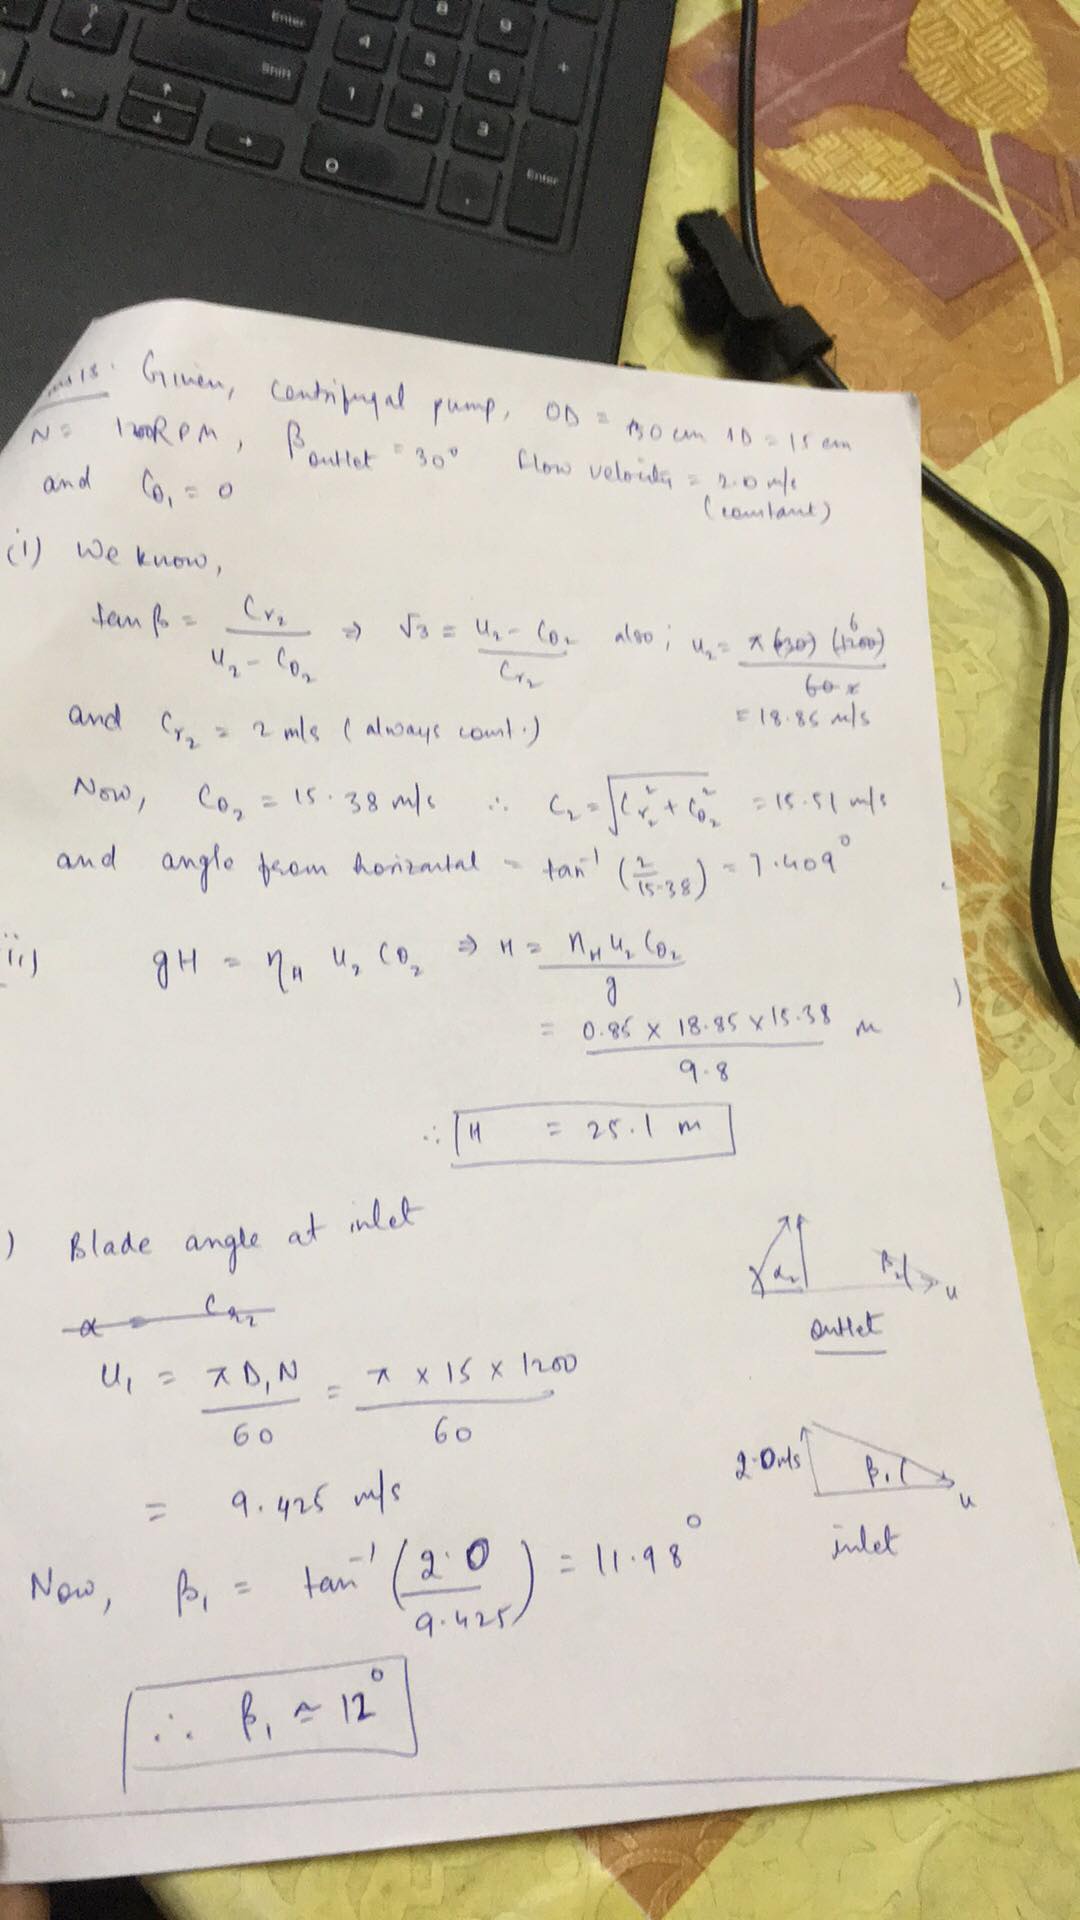 Enter
Shift
8
9
4
5
6
+
1
2
3
0
.
Enter
Given, centrifugal pump, OD = 30 cm ID = 15 cm
N = 1200RPM, βoutlet = 30° flow velocity = 2.0 m/s
(constant)
and Cθ₁ = 0
(i) We know,
tan β = Cr₂ / (u₂ - Cθ₂) ⇒ √3 = (u₂ - Cθ₂) / Cr₂ also; u₂ = π (30) (1200) / 60
= 18.85 m/s
and Cr₂ = 2 m/s (always const.)
Now, Cθ₂ = 15.38 m/s ∴ C₂ = √(Cr₂² + Cθ₂²) = 15.51 m/s
and angle from horizontal = tan⁻¹ (2/15.38) = 7.409°
ii) gH = ηH u₂ Cθ₂ ⇒ H = ηH u₂ Cθ₂ / g
= 0.85 × 18.85 × 15.38 / 9.8 m
∴ H = 25.1 m
) Blade angle at inlet
α₂ β₂ u
outlet
u₁ = πD₁N / 60 = π × 15 × 1200 / 60
= 9.425 m/s
2.0m/s β₁ u
inlet
Now, β₁ = tan⁻¹ (2.0 / 9.425) = 11.98°
∴ β₁ ≃ 12°